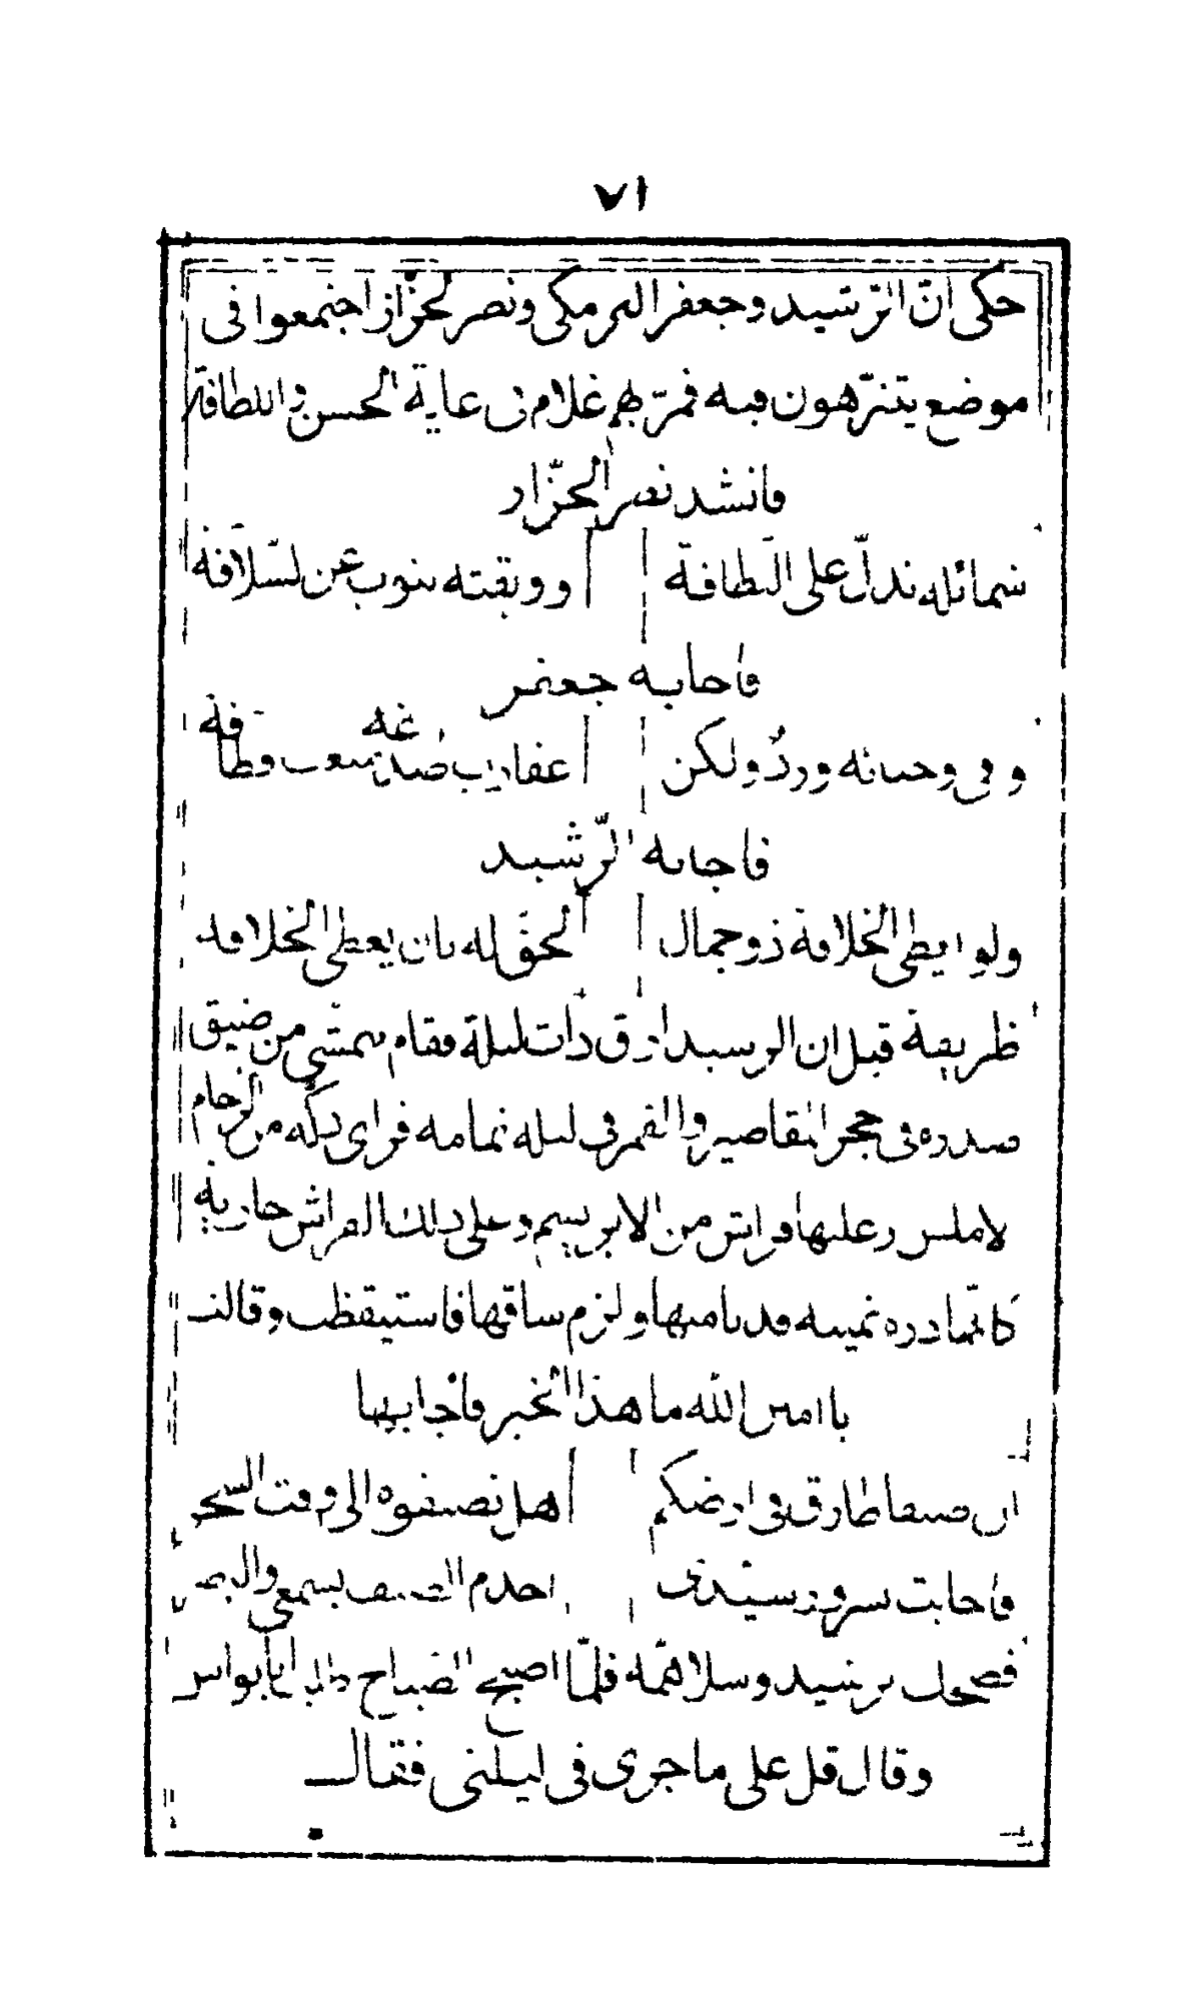 ٧١
حكى انّ الرّشيد وجعفر البرمكى ونصر الخرّاز اجتمعوا فى
موضع يتنزّهون فيه فمرّ بهم غلام فى غاية الحسن واللطافة
فانشد نصر الخرّاز
شمائله تدلّ على اللطافة ووريقته تنوب عن السّلافة
فاجابه جعفر
وفى وجناته وردٌ ولكن عقارب صدغه منعت قطافه
فاجابه الرّشيد
ولو ايعطى الخلافة ذو جمال لحقّ له بان يعطى الخلافه
ظريفة قيل ان الرشيد ارق ذات ليلة فقام يتمشى من ضيق
صدره فى حجر المقاصير والقمر فى ليله تمامه فراى دكه من الرخام
الاملس وعليها فراش من الابريسم وعلى ذلك الفراش جارية
كانّها دره ثمينه فدنا منها ولزم ساقها فاستيقظت وقالت
يا امين الله ما هذا الخبر فأجابها
ان ضيفا طارق فى ارضكم هل تضيفوه الى وقت السحر
فاجابت بسرور سيّدى اخدم الضيف بسمعى والبصر
فضحك الرشيد وسلا همّه فلمّا اصبح الصباح طلب ابا نواس
وقال قل على ما جرى فى ليلتى فقال